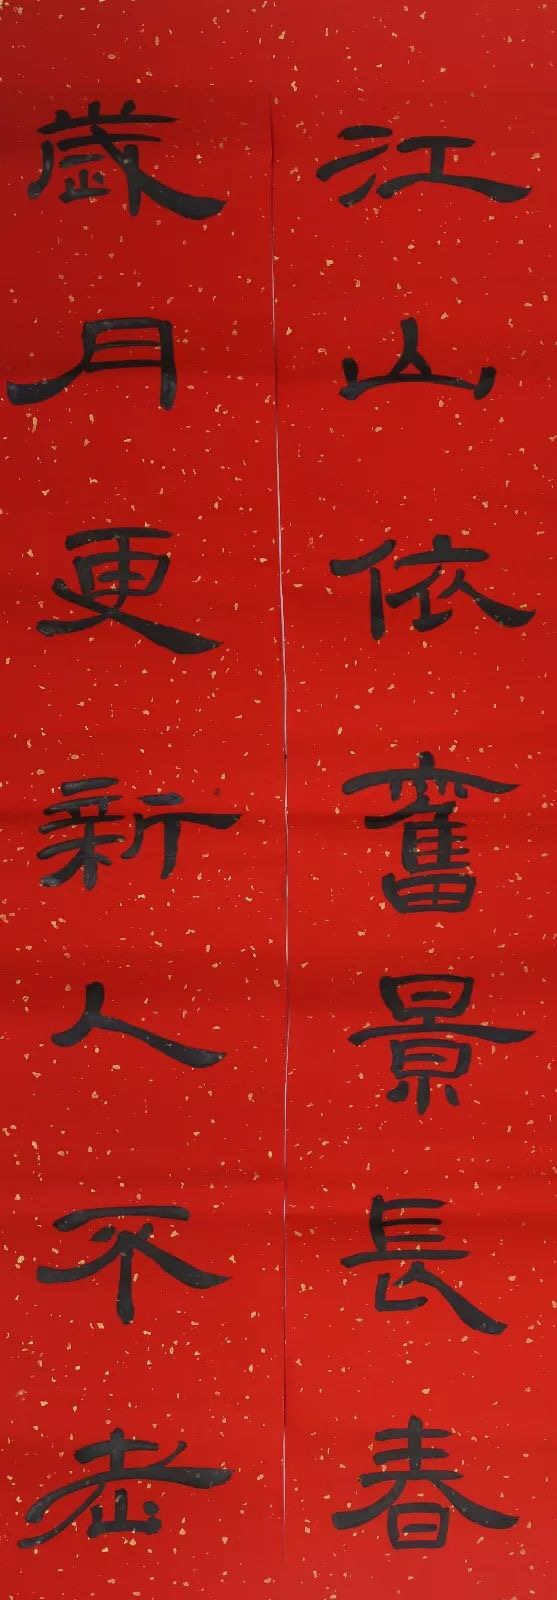 江山依舊景長春
歲月更新人不老